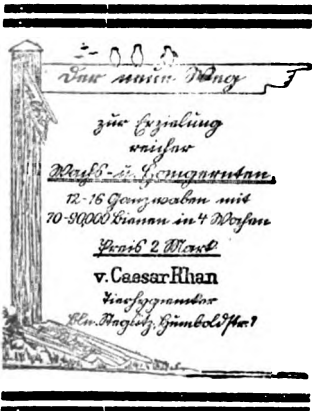 Der neue Weg
zur Erzielung
reicher
Wachs- u. Honigernten.
12-16 Ganzwaben mit
70-90,000 Bienen in 4 Wochen
Preis 2 Mark
v. Caesar Rhan
Tierhygieniker
Bln. Steglitz, Humboldtstr. 7